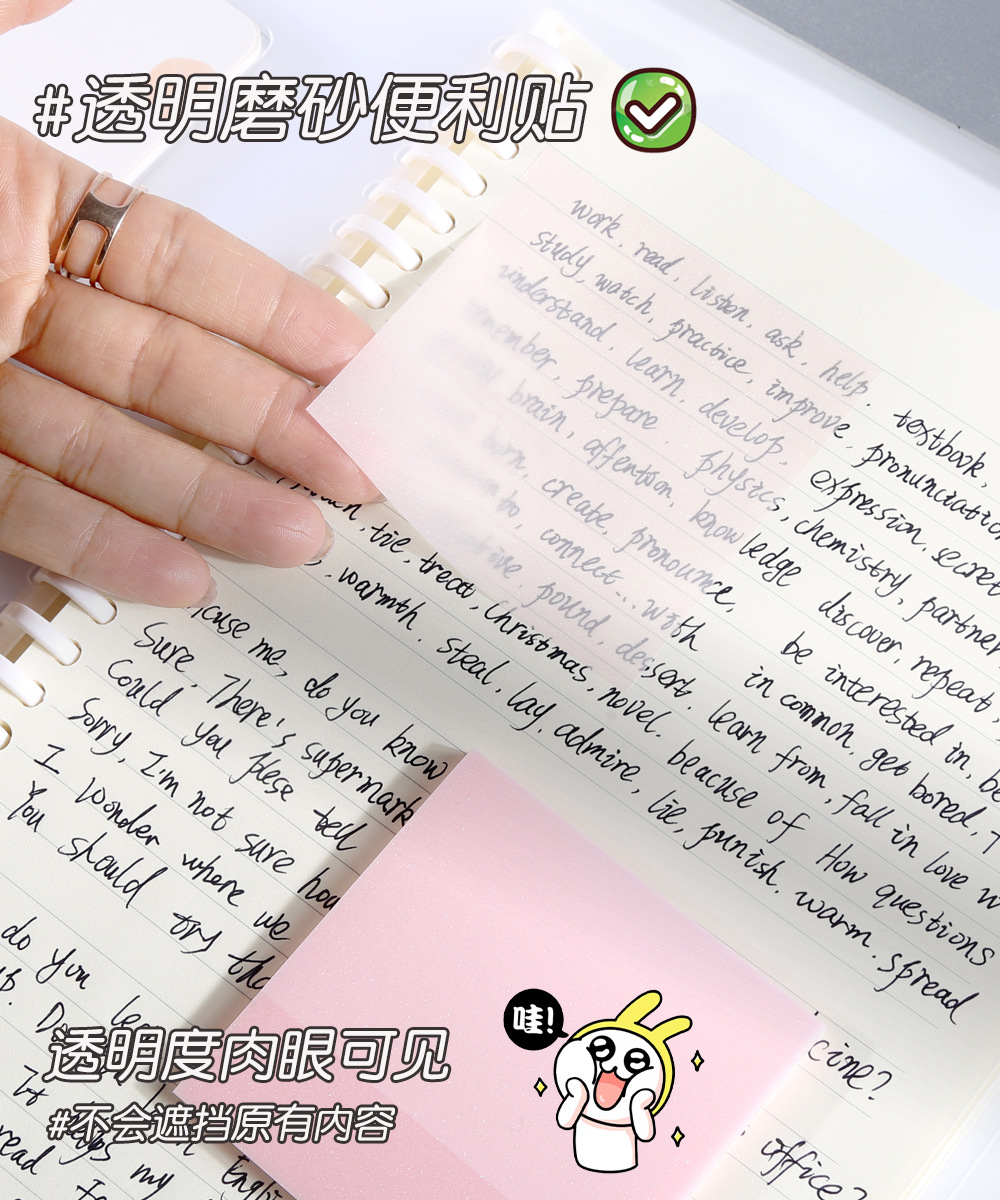 #透明磨砂便利贴
work. read, listen, ask, help. textbook,
study, watch, practice, improve, pronunciation
understand, learn, develop, expression, secret
prepare. physics, chemistry, partner
brain, affention, knowledge discover, repeat,
create, pronounce, be interested in, be
connect... with in common, get bored,
pound, dessert, learn from, fall in love w
tie, treat, Christmas, novel. beacuse of How questions
warmth. steal, lay, admire, lie, punish. warm. spread
me, do you know
Sure, There's supermark
Could you plese tell
Sorry, I'm not sure how
I wonder where we
You should try the
do you
cine?
office?
read
my
哇!
透明度肉眼可见
#不会遮挡原有内容